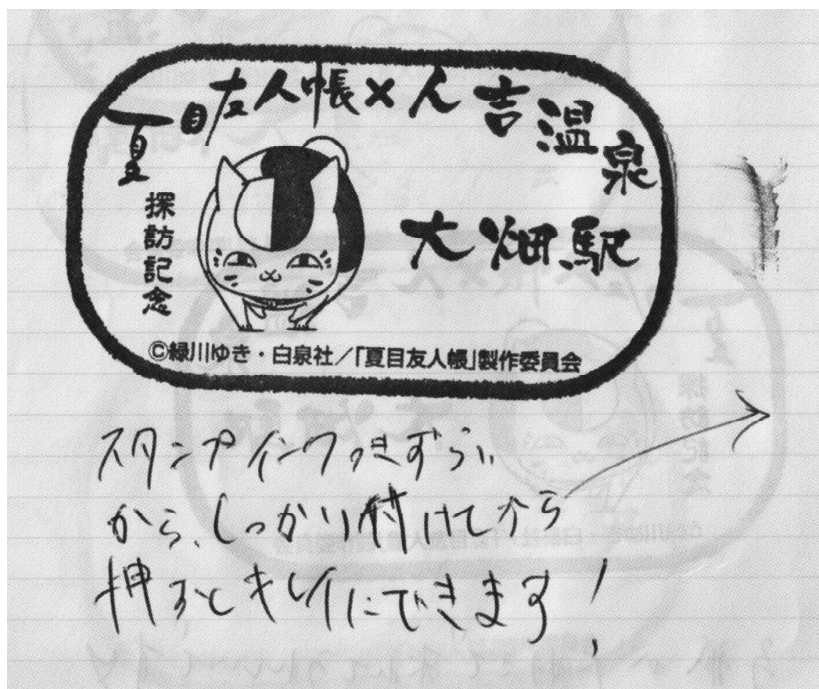 夏目友人帳×人吉温泉
探訪記念
大畑駅
©緑川ゆき・白泉社／「夏目友人帳」製作委員会
スタンプインクつきずらい
から、しっかり付けてから
押すとキレイにできます！